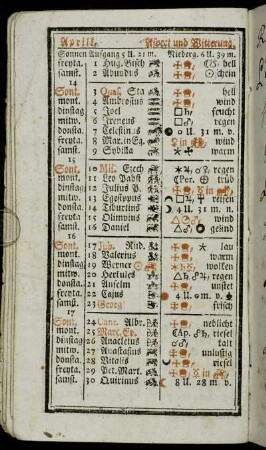 Aprill. Aspect und Witterung.
Sonnen Aufgang 5 U. 21 m. Niederg. 6 U. 39 m.
freyta. 1 Hug. Bisch hell
samst. 2 Abundus schein
14
Sont. 3 Quas. hell
mont. 4 Ambrosius wind
dinstag 5 Joel feucht
mitw. 6 Ireneus regen
donsta. 7 Celestinus 0 U. 31 m. v.
freyta. 8 Mar. in Eg. wind
samst. 9 Sybilla warm
15
Sont. 10 Mis. Ezech regen
mont. 11 Leo Pabst Per. trüb
dinstag 12 Julius P.
mitw. 13 Egesippus reisen
donsta. 14 Tiburtius 8 U. 31 m. n.
freyta. 15 Olimpius wind
samst. 16 Daniel gelind
16
Sont. 17 Jub. Rud. lau
mont. 18 Valerius warm
dinstag 19 Werner wolken
mitw. 20 Herkules regen
donsta. 21 Anselm unstet
freyta. 22 Cajus 4 U. 0 m. v.
samst. 23 Georg frisch
17
Sont. 24 Cant. Albr. neblicht
mont. 25 Marc. Ev. Ap. riesel
dinstag 26 Anacletus kalt
mitw. 27 Anastasius unlustig
donsta. 28 Vitalis riesel
freyta. 29 Pet. Mart.
samst. 30 Quirinus 8 U. 28 m. v.